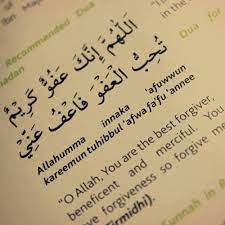 Recommended Dua
Dua for
اَللّٰهُمَّ إِنَّكَ عَفُوٌّ كَرِيْمٌ
تُحِبُّ الْعَفْوَ فَاعْفُ عَنِّيْ
Allahumma innaka 'afuwwun
kareemun tuhibbul 'afwa fa'fu 'annee
"O Allah, You are the best forgiver,
beneficent and merciful. You
forgiveness so forgive me
Sunnah in